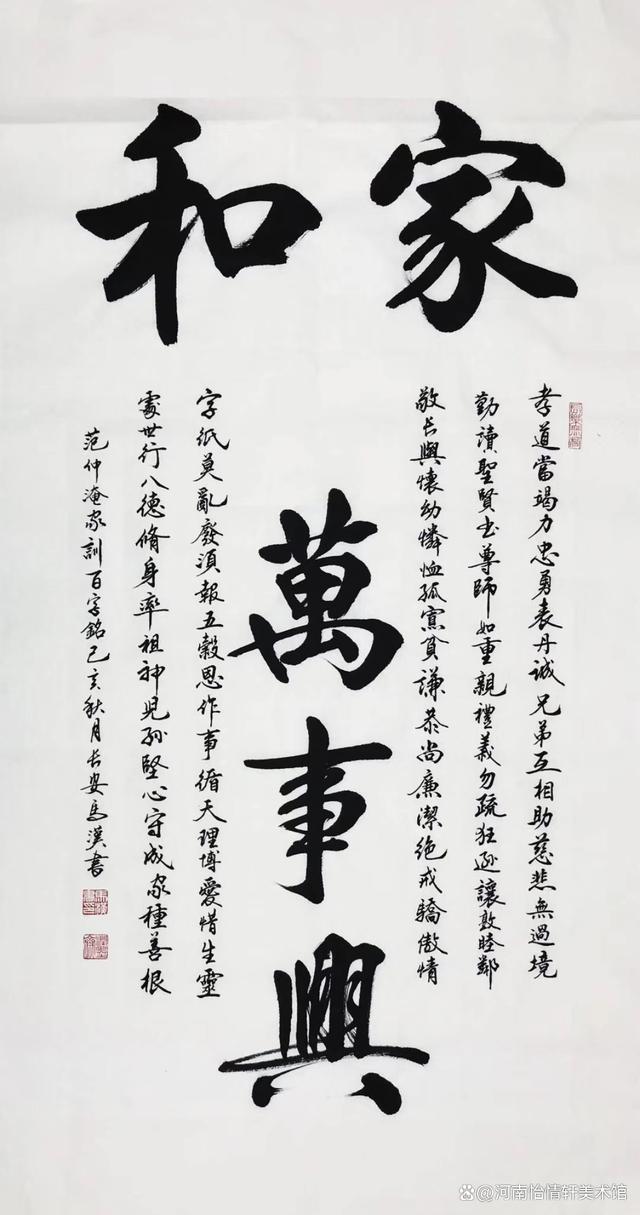 家和
萬事興
孝道當竭力忠勇表丹誠兄弟互相助慈悲無過境
勤讀聖賢书尊師如重親禮義勿疏狂遜讓敦睦鄰
敬长與懷幼憐恤孤寡貧謙恭尚廉潔絶戒驕傲情
字紙莫亂廢須報五穀恩作事循天理博愛惜生靈
處世行八德脩身率祖神児孫堅心守成家種善根
范仲淹家訓百字銘己亥秋月长安馬漢書
@河南怡情轩美术馆